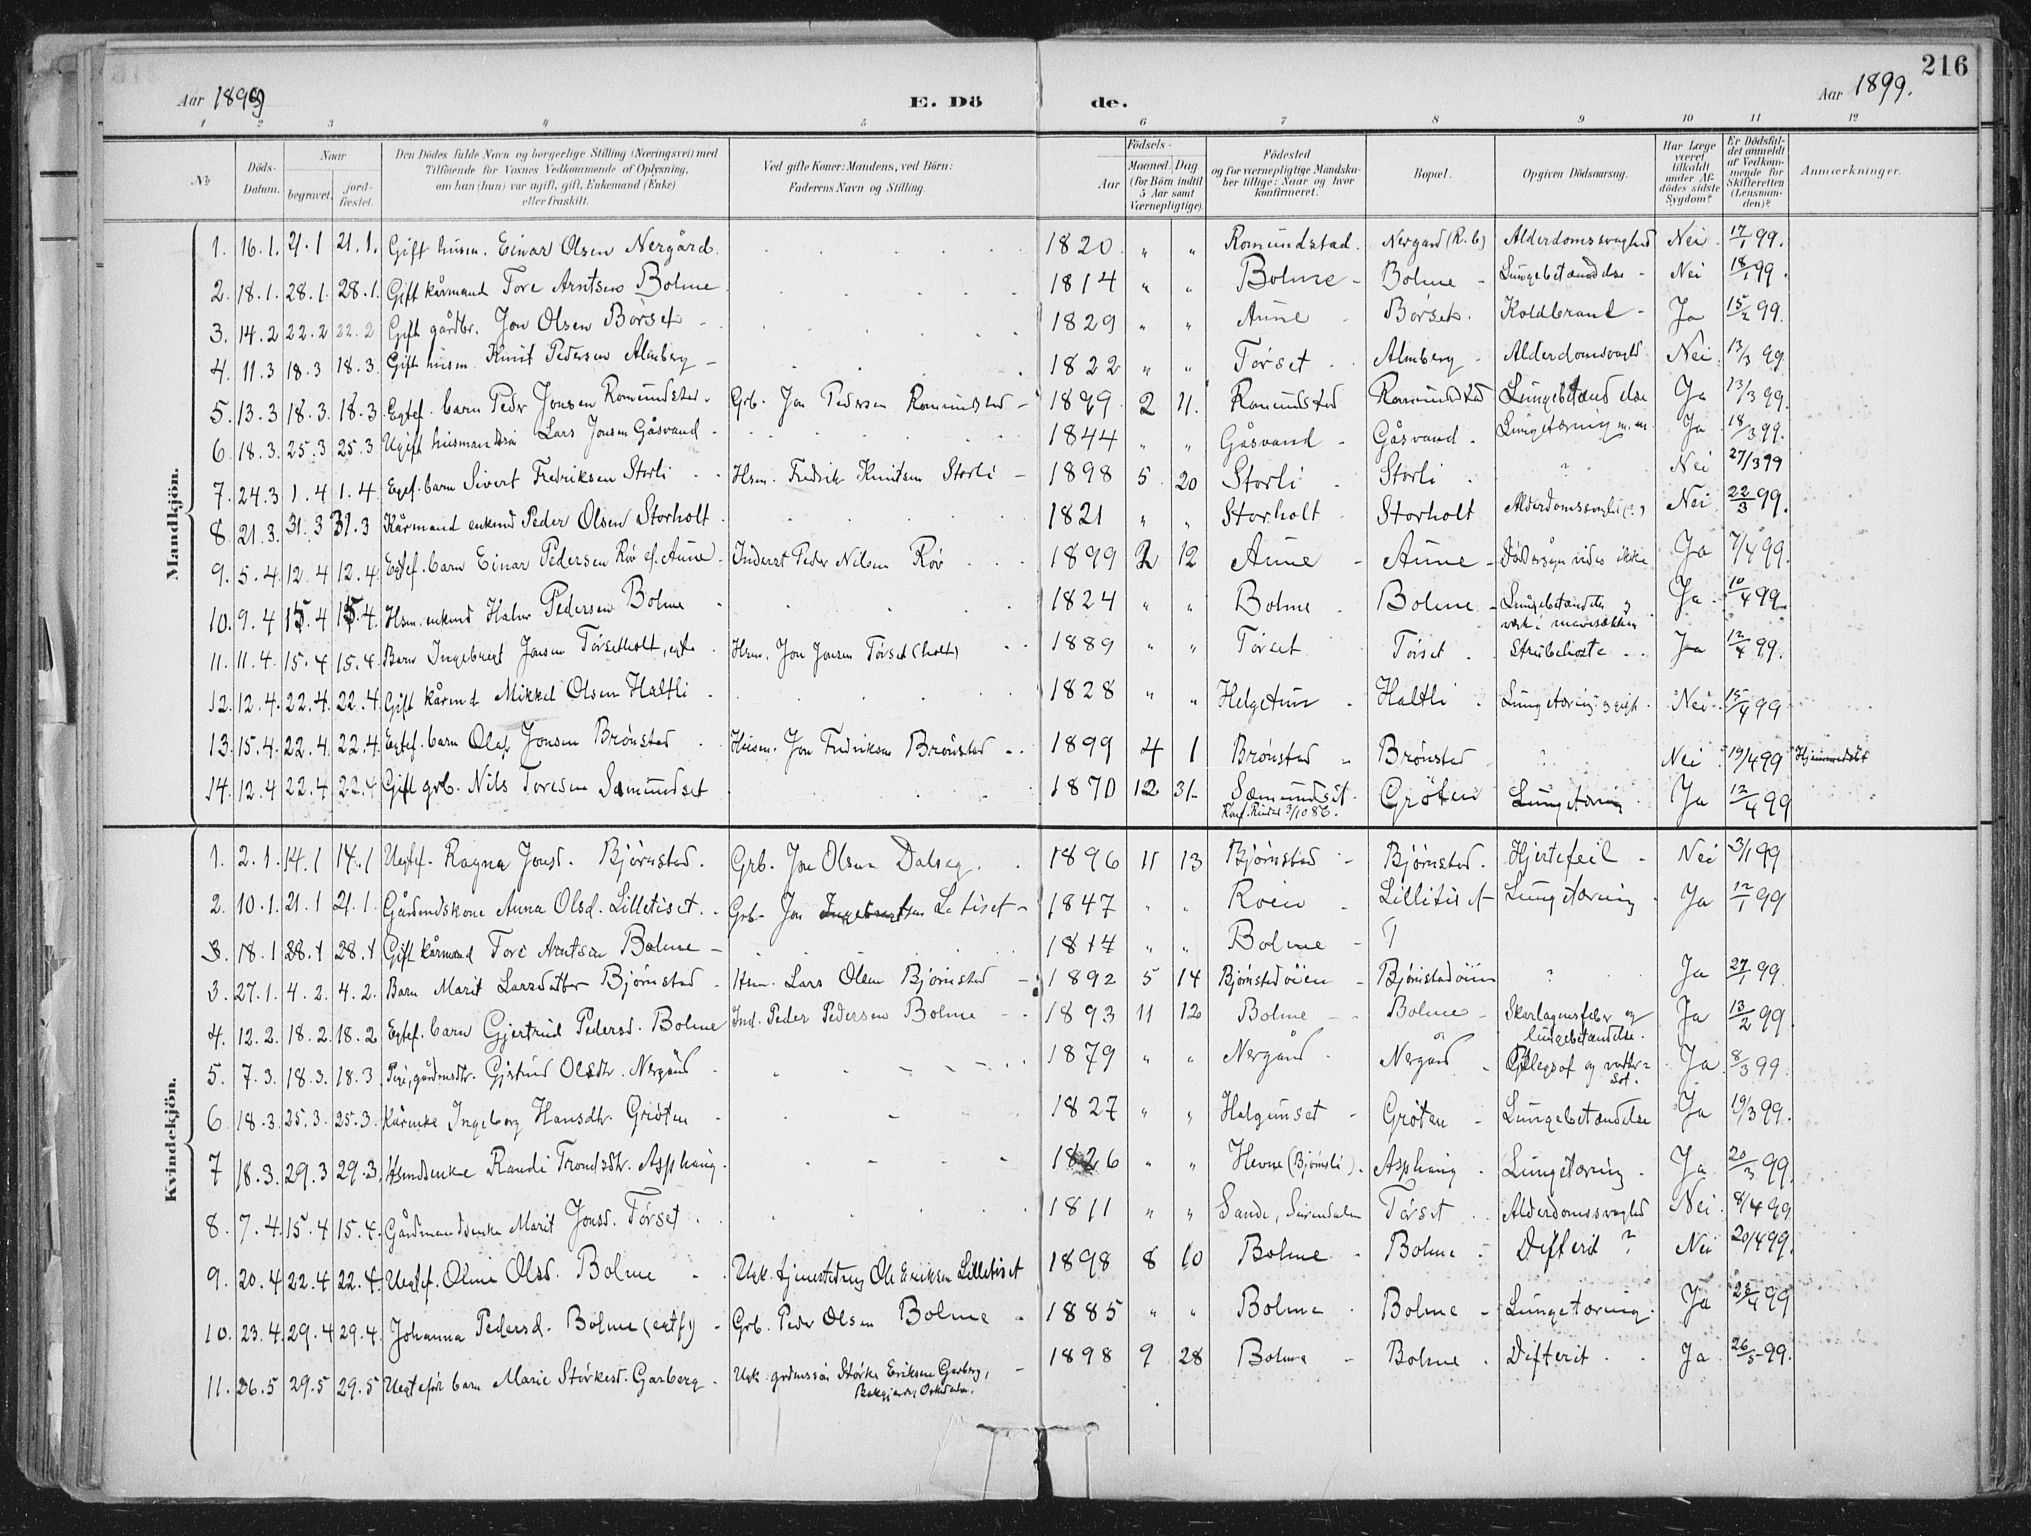 216
Aar 1899
E. Dö
de.
Aar 1899.
1 2 3 4 5 6 7 8 9 10 11 12
No
Döds-Datum.
Naar
begravet.
jord-fæstet.
Den Dödes fulde Navn og borgerlige Stilling (Næringsvei) med
Tilföiende for Voxnes Vedkommende af Oplysning,
om han (hun) var ugift, gift, Enkemand (Enke)
eller fraskilt.
Ved gifte Koner: Mandens, ved Börn:
Faderens Navn og Stilling.
Födsels-
Aar
Maaned Dag
(for Börn indtil
5 Aar samt
Værnepligtige).
Födested
og for værnepligtige Mandska-
ber tillige: Naar og hvor
konfirmeret.
Bopæl.
Opgiven Dödsaarsag.
Har Læge
været
tilkaldt
under Af-
dödes sidste
Sygdom?
Er Dödsfal-
det anmeldt
af Vedkom-
mende for
Skifteretten
(Lensman-
den)?
Anmærkninger.
Mandkjön.
1. 16.1. 21.1 21.1. Gift husm. Einar Olsen Nergård. 1820 " " Romundstad. Nergard (R.b) Alderdomssvaghed Nei 17/1 99.
2. 18.1. 28.1. 28.1. Gift kårmand Tore Arntsen Bolme 1814 " " Bolme - Bolme - Lungebetændelse - Nei 18/1 99.
3. 14.2 22.2 22.2 Gift gårdbr. Jon Olsen Børset 1829 " " Aune Børset. Koldbrand - Ja 15/2 99.
4. 11.3 18.3 18.3. Gift husm. Knut Pedersen Almberg - 1822 " " Tørset Almberg - Alderdomssvaghd Nei 13/3 99
5. 13.3 18.3. 18.3 Egtef. barn Peder Jonsen Romundstad. Grb. Jon Pedersen Romundstad - 1899 2 11. Romundstad Romundstad Lungebetændelse Ja 13/3 99.
6. 18.3. 25.3 25.3 Ugift husmandssøn Lars Jonsen Gåsvand - 1844 " " Gåsvand - Gåsvand. Lungetæring m.m. Ja 18/3 99.
7. 24.3 1.4 1.4. Egtef. barn Sivert Fredriksen Storli Hsm. Fredrik Knutsen Storli - 1898 5 20 Storli Storli ? Nei 27/3 99
8. 21.3. 31.3 31.3 Kårmand enkemd Peder Olsen Storholt 1821 " " Storholt - Storholt Alderdomssvaghd (?) Nei 22/3 99.
9. 5.4. 12.4 12.4. Egtef. barn Einar Pedersen Røv ef. Aune - Inderst Peder Nilsen Røv 1899 2 12 Aune - Aune - Dødsårsag vides ikke Ja 7/4 99.
10. 9.4 15.4 15.4. Hsm. enkemd Halvor Pedersen Bolme 1824 " " Bolme Bolme - Lungebetændelse og
værk i mavesækken Ja 10/4 99.
11. 11.4. 15.4 15.4. Barn Ingebregt Jonsen Tørsetholt, egte Hsm. Jon Jonsen Tørset (holt) 1889 " " Tørset Tørset Strubehoste Ja 12/4 99.
12. 12.4. 22.4. 22.4 Gift kårmd Mikkel Olsen Haltli 1828 " Helgetun Haltli Lungetæring og gigt Nei 15/4 99
13. 15.4. 22.4. 22.4. Egtef. barn Olaf Jonsen Brønstad Husm. Jon Fredriksen Brønstad 1899 4 1 Brønstad Brønstad ? Nei 19/4 99 Hjemmedøbt
14. 12.4 22.4 22.4 Gift grb. Nils Toresen Sæmundset 1870 12 31. Sæmundset.
Konf. Rindal 3/10 86. Grøten Lungetæring Ja 12/4 99
Kvindekjön.
1. 2.1. 14.1 14.1 Uegtef. Ragna Jonsd. Bjørnstad. Grb. Jon Olsen Dalseg. 1896 11 13 Bjørnstad - Bjørnstad. Hjertefeil - Nei 3/1 99
2. 10.1. 21.1 21.1. Gårdmdskone Anna Olsd. Lilletiset. Grb. Jon L. tiset - 1847 " " Roen Lilletiset - Lungetæring Ja 12/1 99
3. 18.1 28.1 28.1 Gift kårmand Tore Arntsen Bolme - 1814 " " Bolme -
3. 27.1. 4.2. 4.2. Barn Marit Larsdatter Bjørnstad - Hsm. Lars Olsen Bjørnstad - 1892 5 14 Bjørnstadøien - Bjørnstadøien ? Ja 27/1 99.
4. 12.2. 18.2. 18.2 Egtef. barn Gjertrud Pedersd. Bolme Ind. Peder Pedersen Bolme 1893 11 12 Bolme - Bolme - Skarlagensfeber og
lungebetændelse. Ja 13/2 99.
5. 7.3. 18.3. 18.3 Pige, gårdmdtr. Gjertrud Olsdtr. Nergård 1879 " " Nergård. Nergard - og vatter-
sot. Ja 8/3 99.
6. 18.3. 25.3. 25.3. Kårenke Ingeborg Hansdtr. Grøten 1827 " " Helgunset - Grøten - Lungebetændelse Ja 19/3 99.
7 18.3. 29.3 29.3. Hsmdsenke Randi Trondsdtr. Asphaug. 1826 " " Hevne (Bjørnli). Asphaug - Lungetæring. Ja 20/3 99.
8. 7.4. 15.4 15.4. Gårdmandsenke Marit Jonsd. Tørset 1811 " " Sande, Surendalen Tørset Alderdomssvaghed Nei 8/4 99
9. 20.4 22.4 22.4. Uegtef. Oline Olsd. Bolme Ugk. tjenestedreng Ole Eriksen Lilletiset 1898 8 10 Bolme Bolme - Difterit ? Nei 20/4 99.
10. 23.4. 29.4 29.4. Johanna Pedersd. Bolme (egtf) - Grb. Peder Olsen Bolme - 1885 " " Bolme Bolme - Lungetæring. Ja 99
11. 26.5 29.5 29.5 Uegtefødt barn Marie Størkesd. Garberg - Ugk. grdmssøn Størker Eriksen Garberg,
Orkdalen. 1898 9 28 Bolme - Bolme. Difterit Ja 26/5 99.